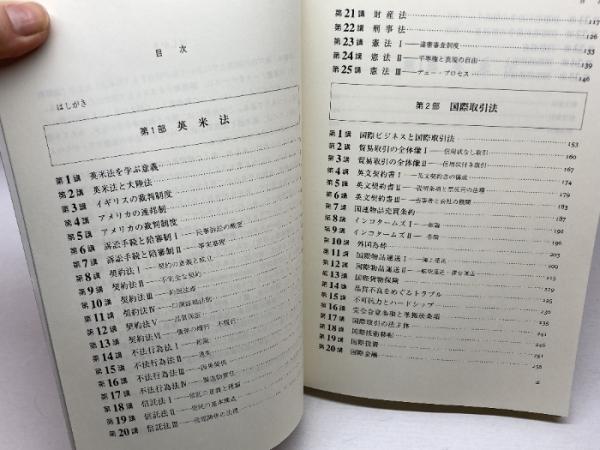 目次
はしがき
第1部 英米法
第1講 英米法を学ぶ意義
第2講 英米法と大陸法
第3講 イギリスの裁判制度
第4講 アメリカの連邦制
第5講 アメリカの裁判制度
第6講 訴訟手続と陪審制Ⅰ——民事訴訟の概要
第7講 訴訟手続と陪審制Ⅱ——事実審理
第8講 契約法Ⅰ——契約の意義と成立
第9講 契約法Ⅱ——不完全な契約
第10講 契約法Ⅲ——約因法理
第11講 契約法Ⅳ——口頭証拠法則
第12講 契約法Ⅴ
第13講 契約法Ⅵ
第14講 不法行為法Ⅰ
第15講 不法行為法Ⅱ——過失
第16講 不法行為法Ⅲ
第17講 不法行為法Ⅳ——製造物責任
第18講 信託法Ⅰ
第19講 信託法Ⅱ——信託の基本構造
第20講 信託法Ⅲ
第21講 財産法 117
第22講 刑事法 126
第23講 憲法Ⅰ——違憲審査制度 133
第24講 憲法Ⅱ——平等権と表現の自由 139
第25講 憲法Ⅲ——デュー・プロセス 146
第2部 国際取引法
第1講 国際ビジネスと国際取引法 153
第2講 貿易取引の全体像Ⅰ——信用状なし取引 160
第3講 貿易取引の全体像Ⅱ——信用状付き取引 167
第4講 英文契約書Ⅰ——英文契約書の構成 173
第5講 英文契約書Ⅱ
第6講 英文契約書Ⅲ 183
第7講 国連物品売買条約 187
第8講 インコタームズⅠ——総論
第9講 インコタームズⅡ——各論 196
第10講 外国為替
第11講 国際物品運送Ⅰ——海上運送
第12講 国際物品運送Ⅱ
第13講 国際貨物保険
第14講 品質不良をめぐるトラブル
第15講 不可抗力とハードシップ
第16講 完全合意条項と準拠法条項
第17講 国際取引の法主体
第18講 国際技術移転
第19講 国際投資
第20講 国際金融